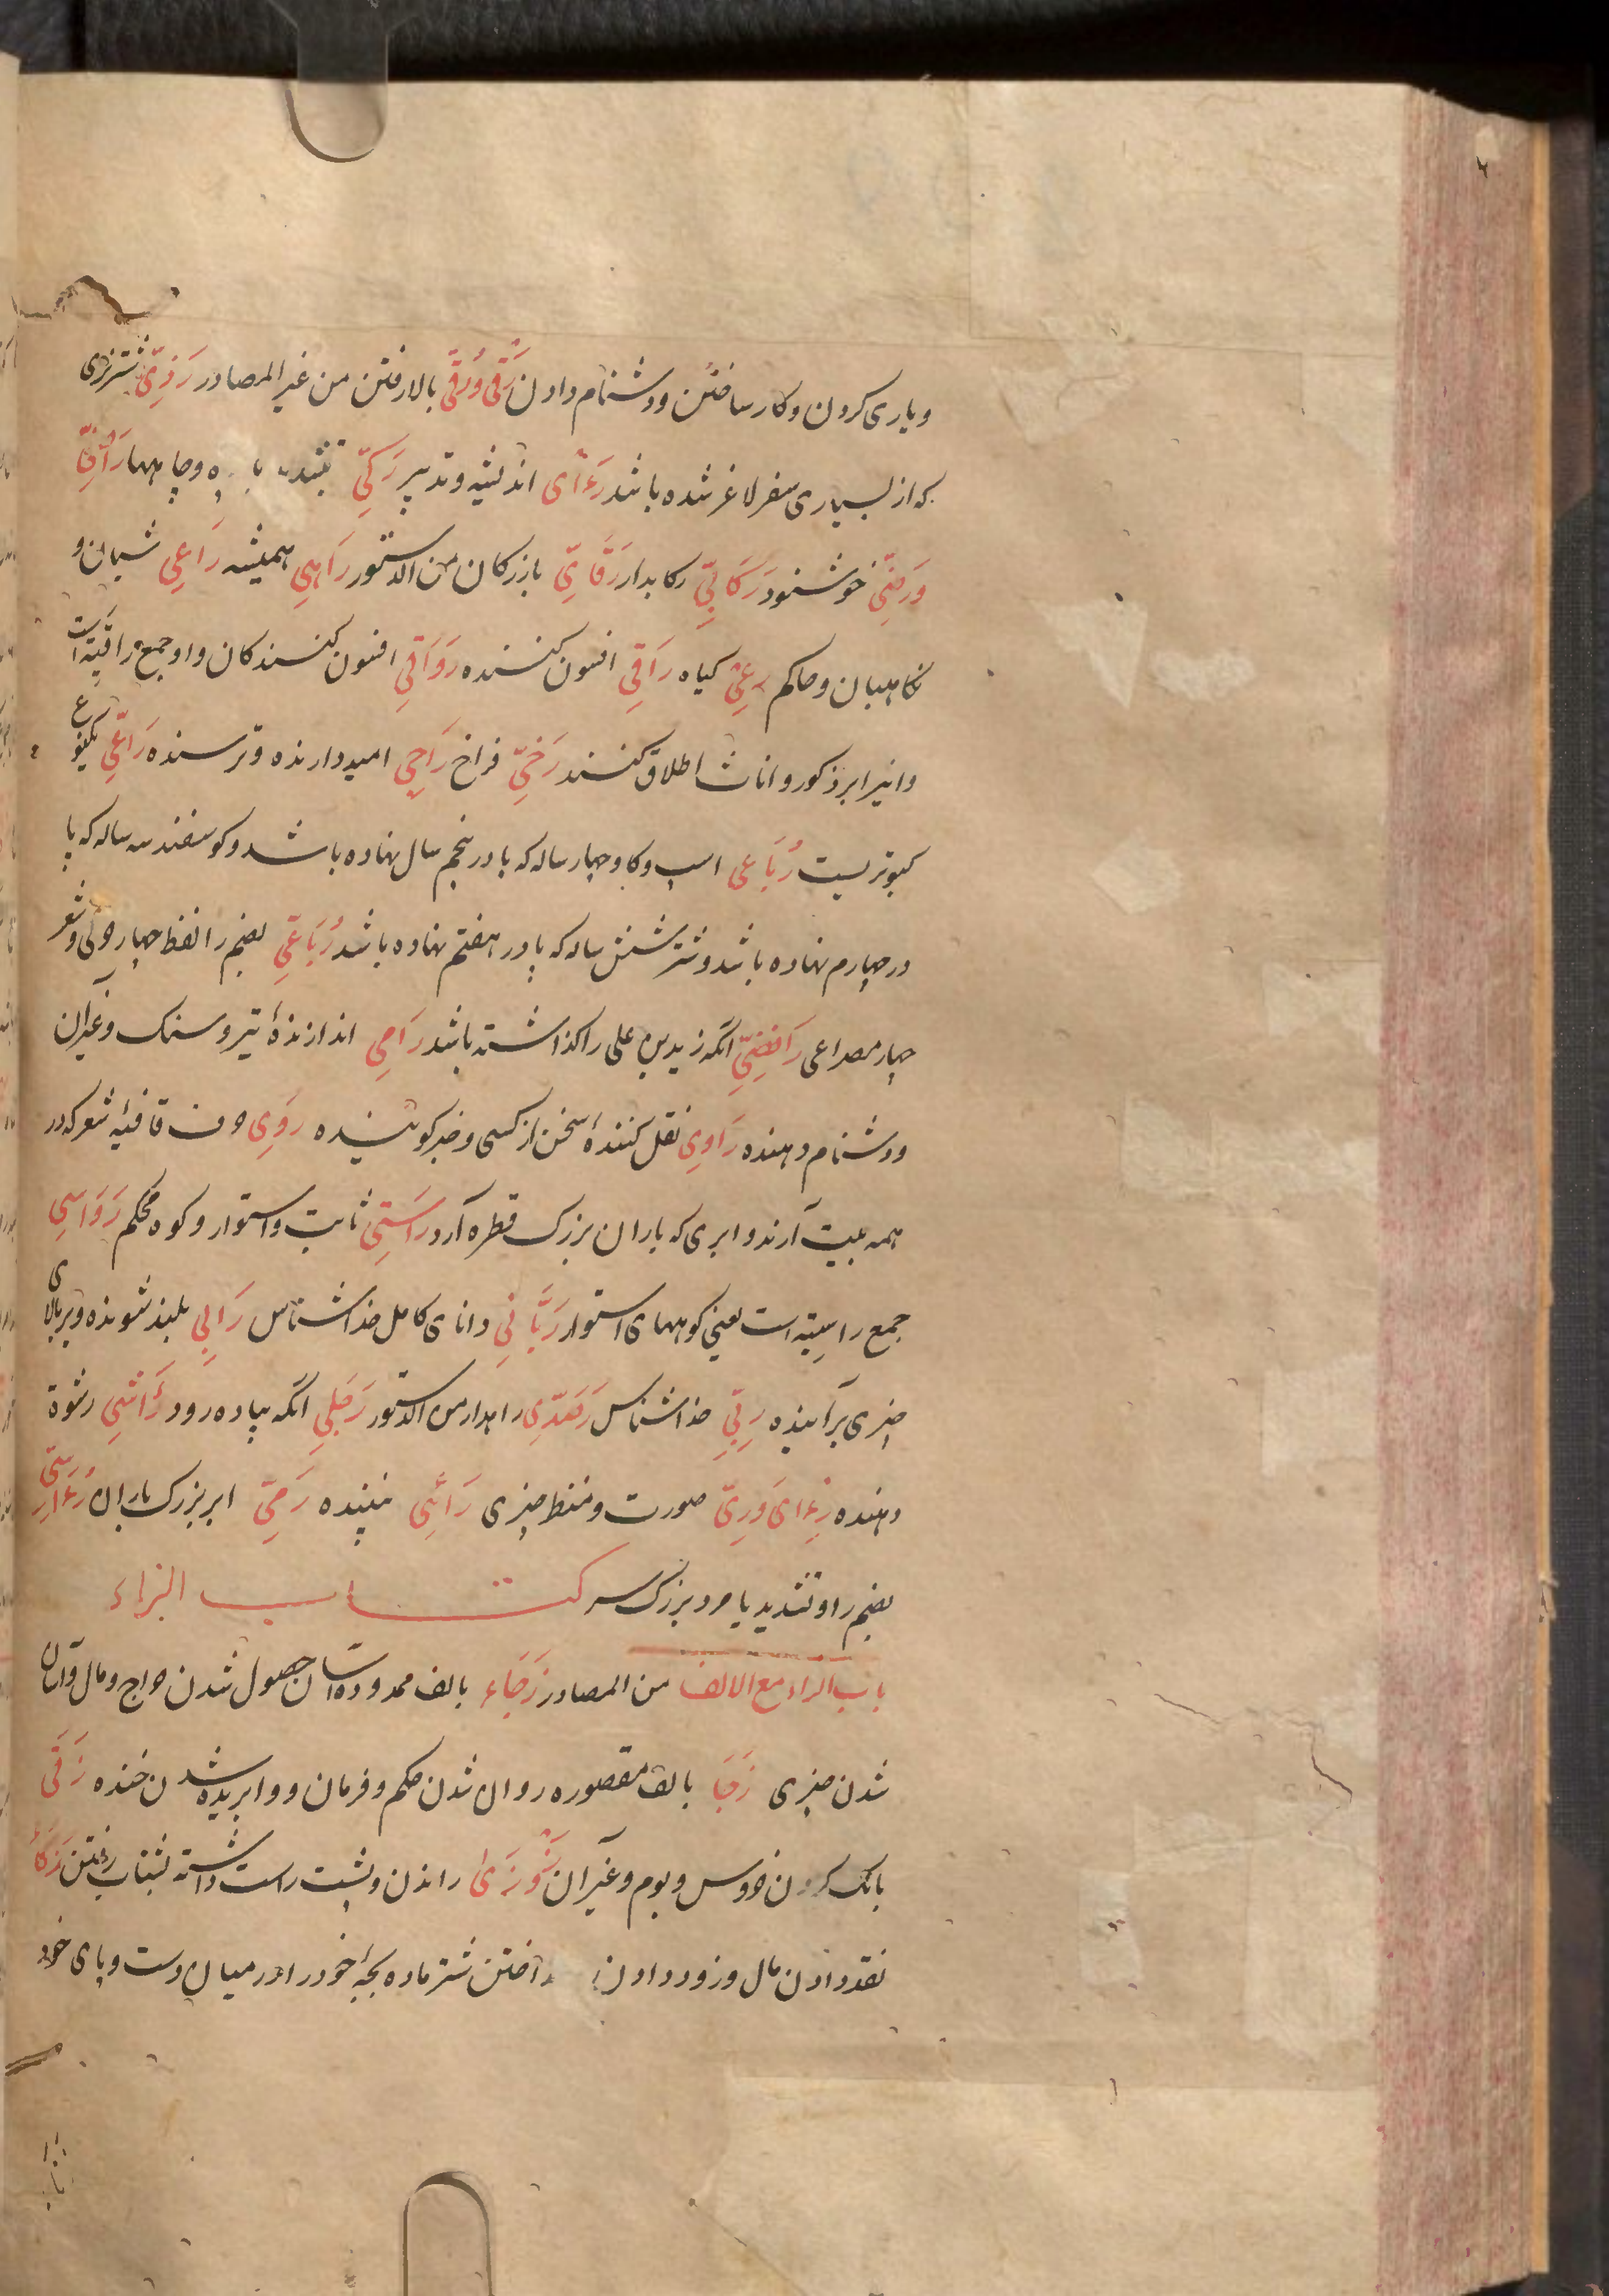 و یاری کردن و کار ساختن و دشنام دادن رَقْیٌ وَرُقِیٌّ بالا رفتن من غیر المصادر رَذِیّ شتر نری
که از بسیاری سفر لاغر شده باشد رَءْای اندیشه و تدبیر رَکِیّ بتشدید یا و چاهها
وَرَضِیّ خوشنود رَکَابِیّ رکابدار رَقَّاِیّ بازرکان من الدستور رَاهِی همیشه رَاعِی شبان و
نکاهبان و حاکم رِعْی کیاه رَاقِی افسون کننده رَوَاقِی افسون کنندکان و او جمع رَاقِیَة است
و این را بر ذکور و اناث اطلاق کنند رَخِیّ فراخ رَاجِی امید دارنده و ترسنده رَاعِّی یکنوع
کبوتریست رُبَاعی اسپ و کاو چهار ساله که پا در پنجم سال نهاده باشد و کوسفند سه ساله که پا
در چهارم نهاده باشد و شتر شش ساله که پا در هفتم نهاده باشد رُبَاعِّی بضم را لفظ چهار حرفی و شعر
چهار مصراعی رَافِضِیّ انکه زید بن علی را کذاشته باشد رَامِی اندازندهٔ تیر و سنک و غیر آن
و دشنام دهنده رَاوِی نقل کنندهٔ سخن از کسی و خبر کوینده رَوِی حرف قافیهٔ شعر که در
همه بیت آرند و ابری که باران بزرک قطره آرد رَاسِّی ثابت و استوار و کوه محکم رَوَاسِی
جمع راسِیَة است یعنی کوههای استوار رَبَّانِی دانای کامل خداشناس رَابِی بلند شونده و بر بالای
چیزی برآینده رِبِّی خداشناس رَصَدِّی راهدار من الدستور رَجِلِی انکه پیاده رود رَاشِی رشوة
دهنده رِءْای وَرِیّ صورت و منظر چیزی رَائِی بیننده رَمِیّ ابر بزرک باران رُءَاسِّی
بضم را و تشدید یا مرد بزرک سر کتاب الزاء
باب الزاء مع الالف من المصادر زَجَاء بالف ممدوده آسان حصول شدن خراج و مال و آسان
شدن چیزی زَجَا بالف مقصوره روان شدن حکم و فرمان و وابریده شدن خنده زَقَی
بانک کردن خروس و بوم و غیر آن راندن و پشت راست داشته بشتاب رفتن زَکَأ
نقد دادن مال و زود دادن انداختن شتر ماده بچهٔ خود را در میان دست و پای خود